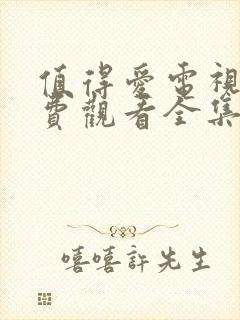 值得愛電視
費觀看全集
嘻嘻許先生